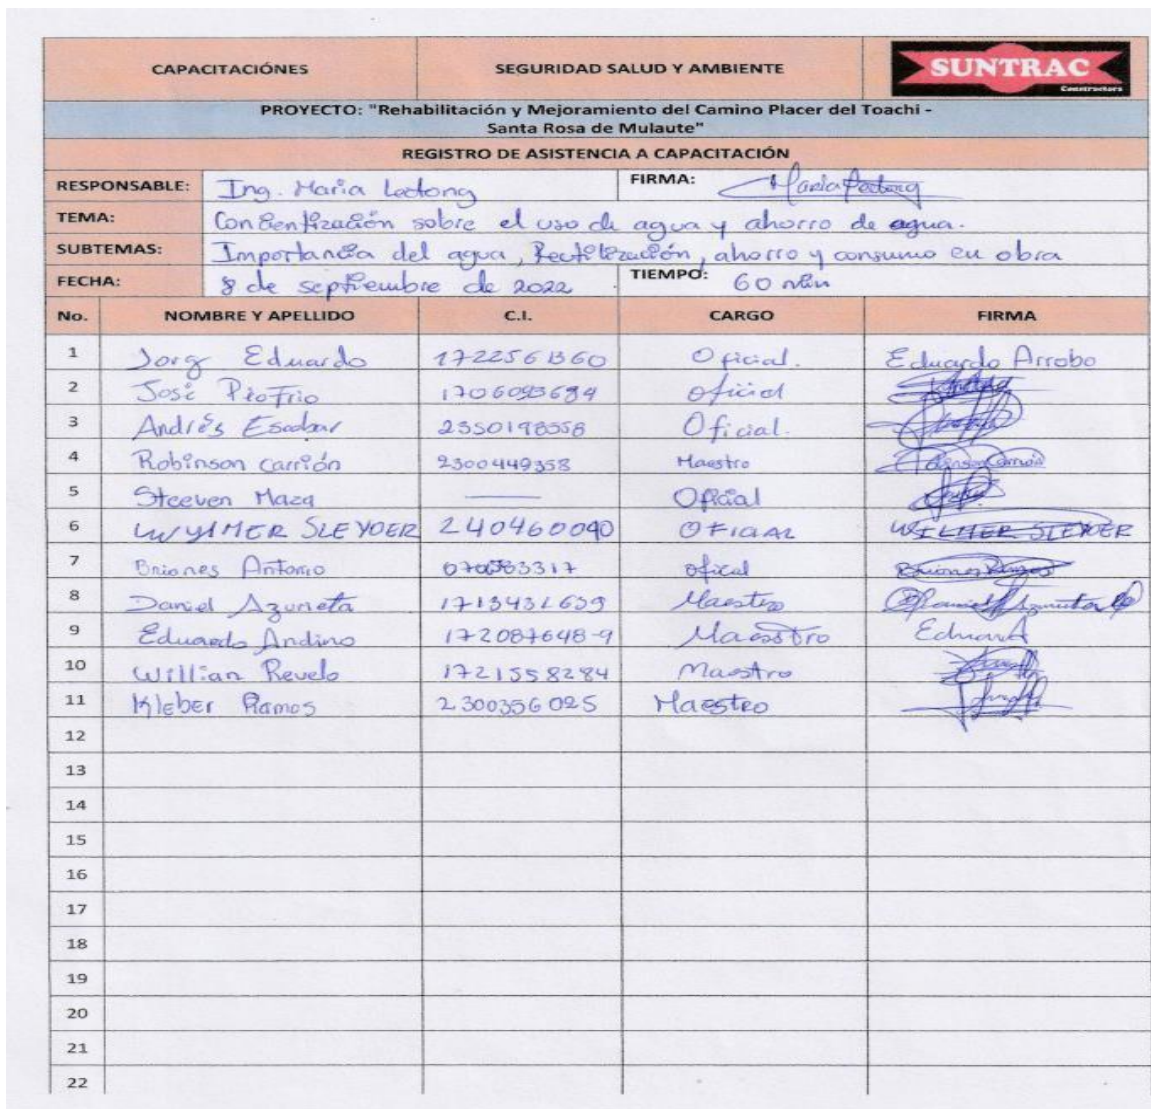 CAPACITACIÓNES SEGURIDAD SALUD Y AMBIENTE SUNTRAC Constructors
PROYECTO: "Rehabilitación y Mejoramiento del Camino Placer del Toachi -
Santa Rosa de Mulaute"
REGISTRO DE ASISTENCIA A CAPACITACIÓN
RESPONSABLE: Ing. Maria Lectong FIRMA:
TEMA: Concientización sobre el uso de agua y ahorro de agua.
SUBTEMAS: Importancia del agua, Reutilización, ahorro y consumo en obra
FECHA: 8 de septiembre de 2022 TIEMPO: 60 min
No. NOMBRE Y APELLIDO C.I. CARGO FIRMA
1 Jorg Eduardo 1722561360 Oficial. Eduardo Arrobo
2 José Riofrio oficial
3 Andrés Escobar 2350198558 Oficial.
4 Robinson Carrión 2300449358 Maestro
5 Steeven Maza Oficial
6 WYLMER SLEYDER 240460090 OFICIAL WILMER SLEYDER
7 Briones Antonio oficial
8 Daniel Azuneta 1713431639 Maestro
9 Eduardo Andino 172087648-9 Maesstro EduarA
10 Willian Revelo 1721558284 Maestro
11 Kleber Ramos 2300356025 Maestro
12
13
14
15
16
17
18
19
20
21
22